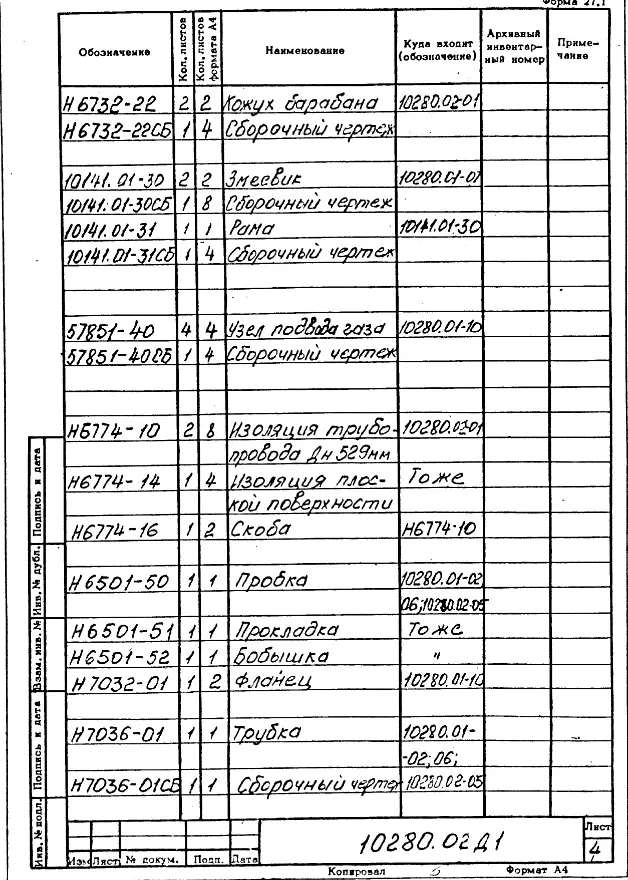 Форма 27.1
Обозначение Кол. листов Кол. листов формата А4 Наименование Куда входит (обозначение) Архивный инвентар-ный номер Приме-чание
Н6732-22 2 2 Кожух барабана 10280.02-01
Н6732-22СБ 1 4 Сборочный чертеж
10141.01-30 2 2 Змеевик 10280.01-01
10141.01-30СБ 1 8 Сборочный чертеж
10141.01-31 1 1 Рама 10141.01-30
10141.01-31СБ 1 4 Сборочный чертеж
57851-40 4 4 Узел подвода газа 10280.01-10
57851-40СБ 1 4 Сборочный чертеж
Н6774-10 2 8 Изоляция трубо- 10280.02-01
провода Дн 529мм
Н6774-14 1 4 Изоляция плос- То же
кой поверхности
Н6774-16 1 2 Скоба Н6774-10
Н6501-50 1 1 Пробка 10280.01-02
06;10280.02-05
Н6501-51 1 1 Прокладка То же
Н6501-52 1 1 Бобышка "
Н7032-01 1 2 Фланец 10280.01-10
Н7036-01 1 1 Трубка 10280.01-
-02;06;
Н7036-01СБ 1 1 Сборочный чертеж 10280.02-05
Подпись и дата
Инв. № дубл.
Взам. инв. №
Подпись и дата
Инв. № подл.
Изм Лист № докум. Подп. Дата
10280.02Д1
Лист
4
Копировал Б Формат А4